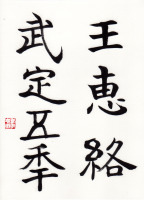 王恵絡
武定五季